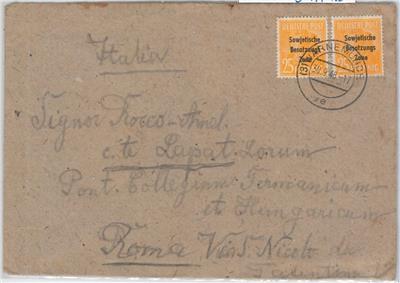 DEUTSCHE POST DEUTSCHE POST
Sowjetische Sowjetische
Besatzungs Besatzungs
Zone Zone
25 25
WARNEMÜNDE
Italia
Signor Rocco
c.te Lapat Lorum
Pont. Collegium Germanicum
et Hungaricum
Roma Via S. Nicolo da
Tolentino